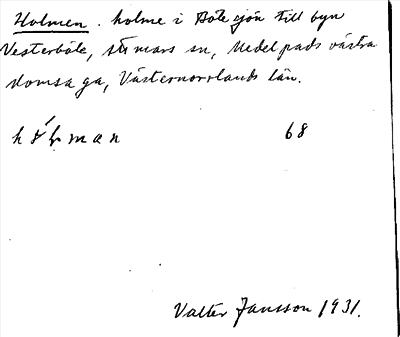 Holmen. holme i Bölesjön till byn
Vesterböle, Stöd sn, Medelpads västra
domsaga, Västernorrlands län.
man 68
Valter Jansson 1931.